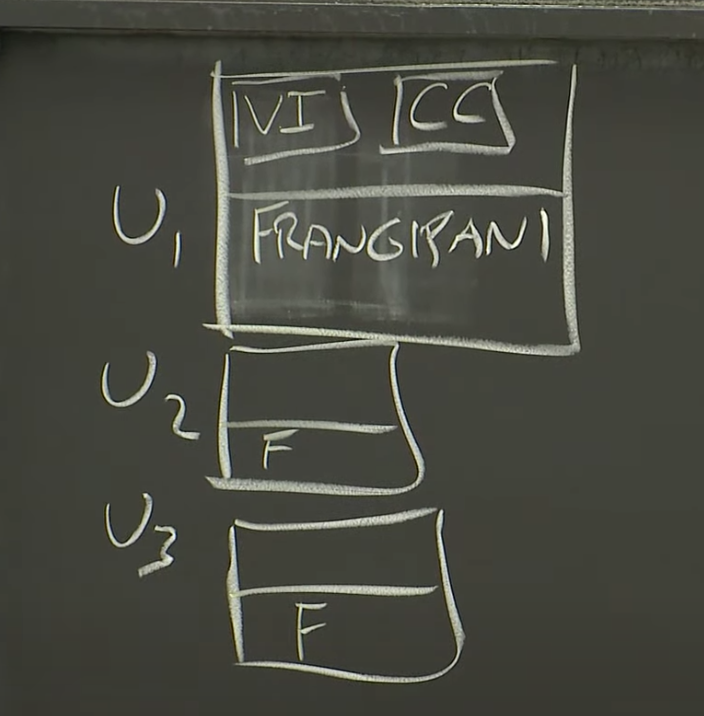 VI CC
U1 FRANGIPANI
U2
F
U3
F